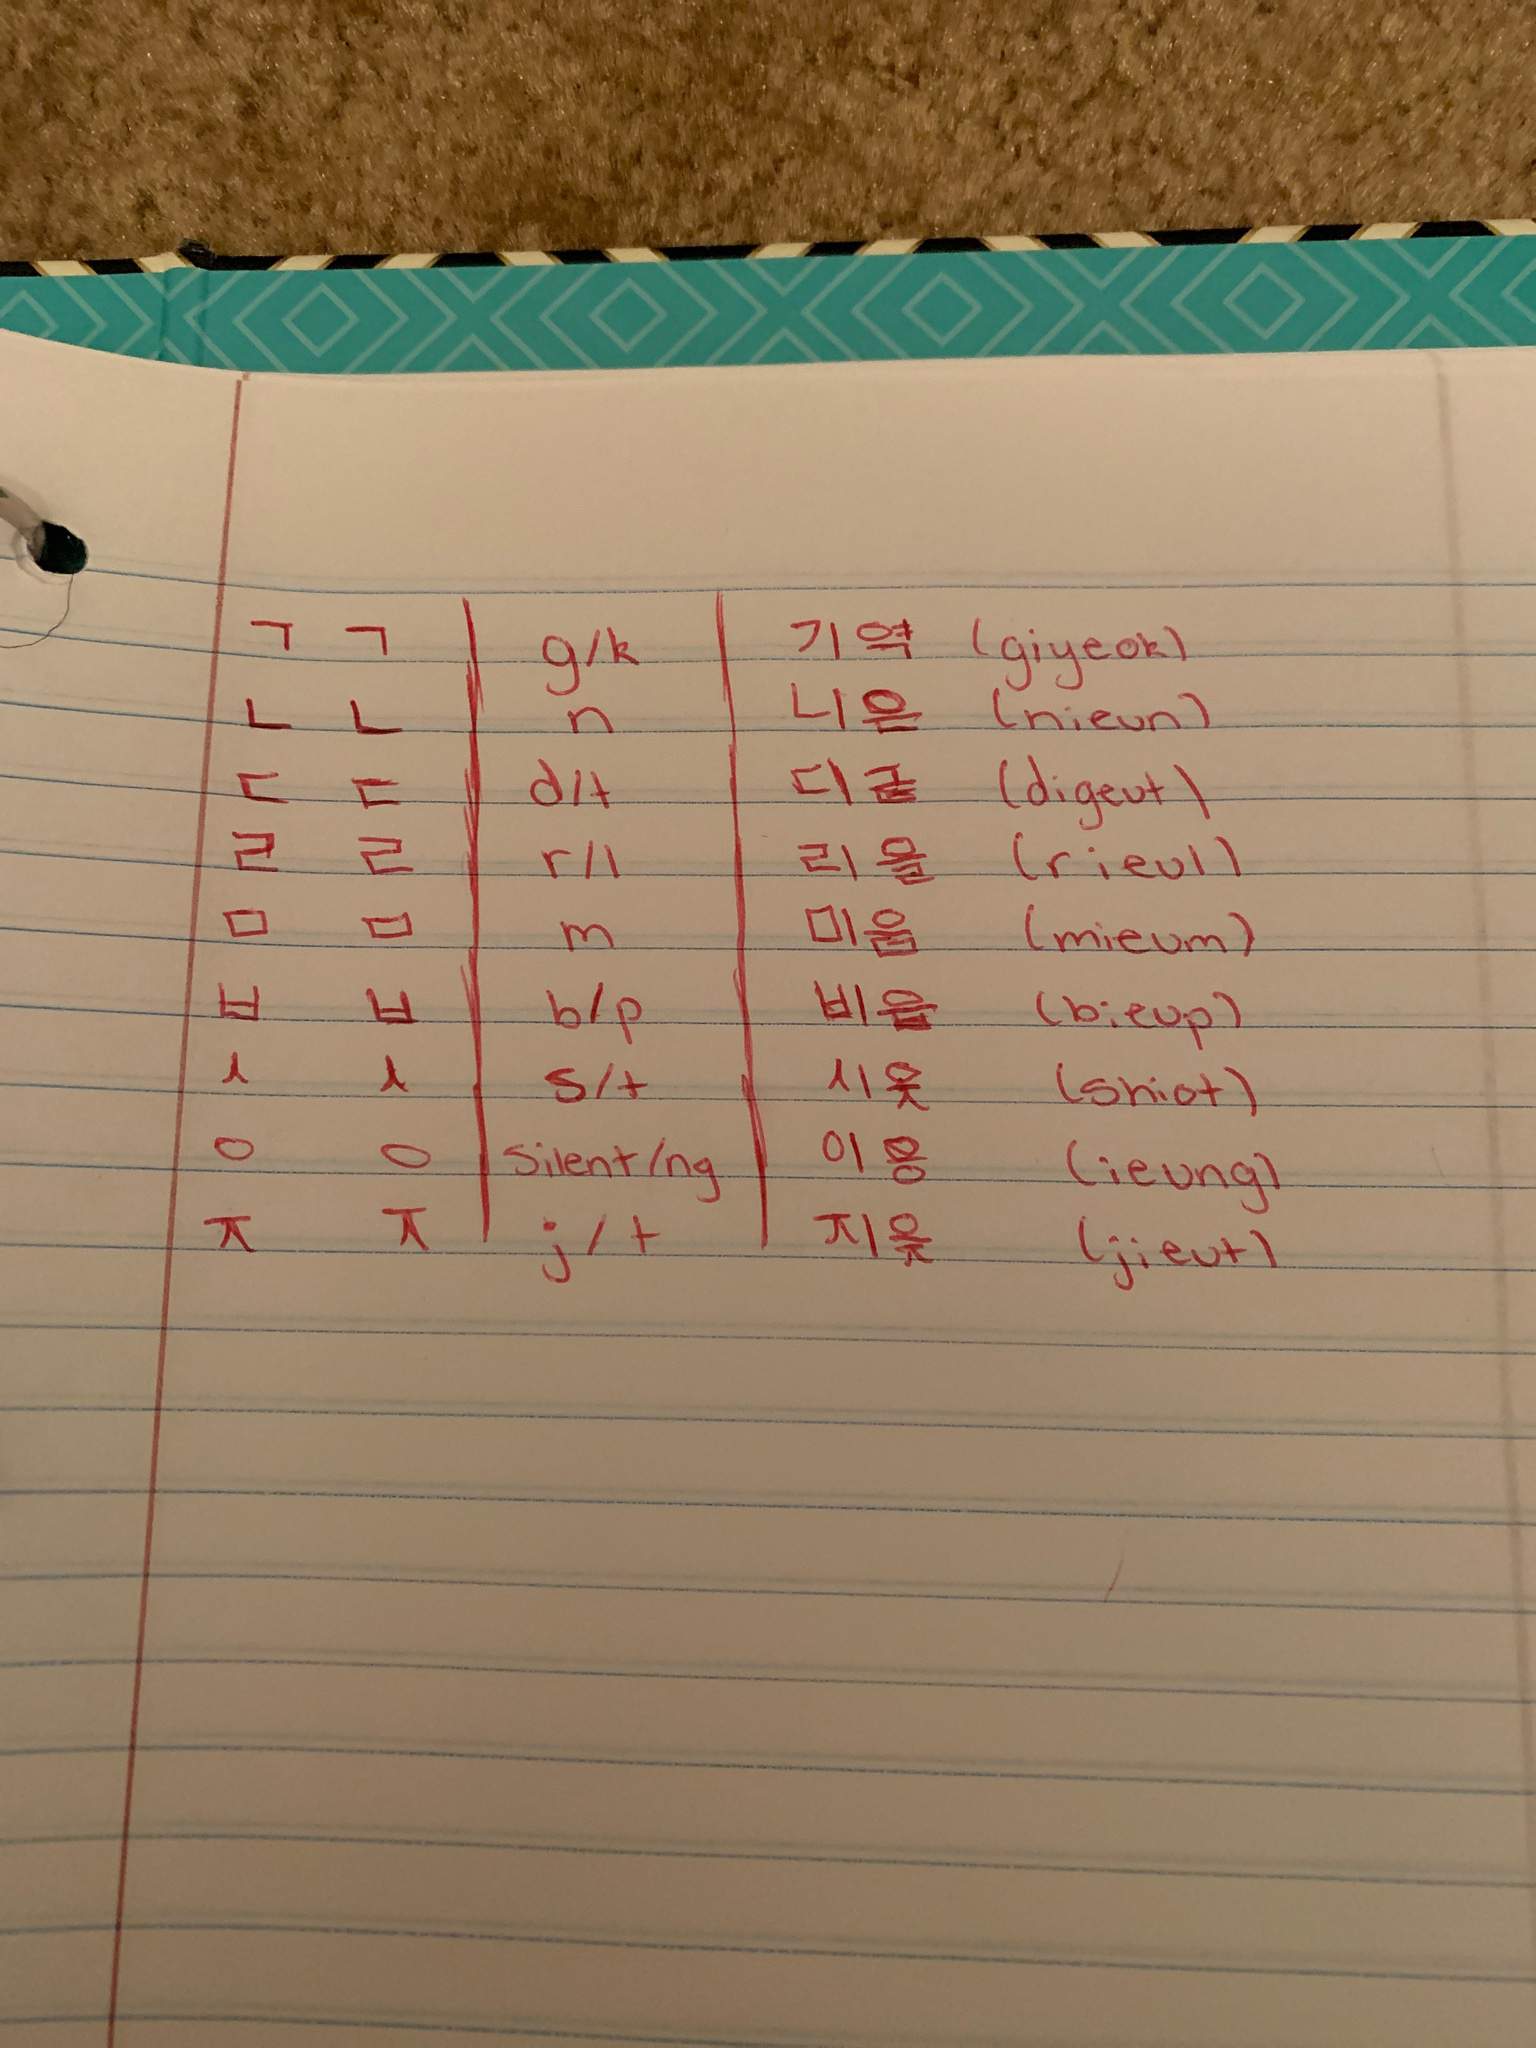 ㄱ ㄱ g/k 기역 (giyeok)
ㄴ ㄴ n 니은 (nieun)
ㄷ ㄷ d/t 디귿 (digeut)
ㄹ ㄹ r/l 리을 (rieul)
ㅁ ㅁ m 미음 (mieum)
ㅂ ㅂ b/p 비읍 (bieup)
ㅅ ㅅ s/t 시옷 (shiot)
ㅇ ㅇ silent/ng 이응 (ieung)
ㅈ ㅈ j/t 지읒 (jieut)